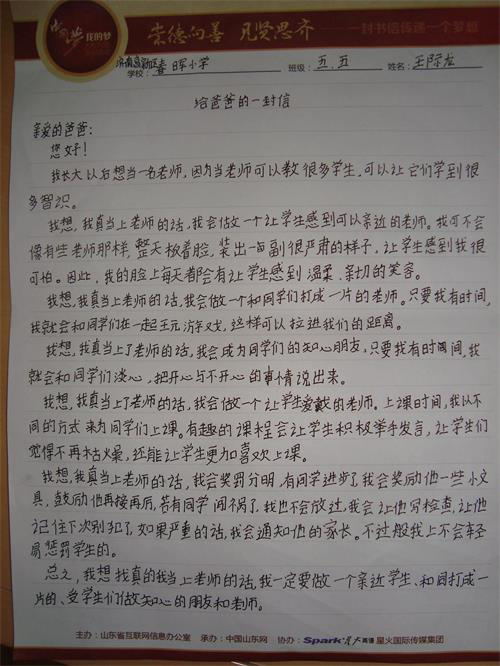 中国梦 我的梦 崇德向善 见贤思齐 一封书信传递一个梦想
学校：济南高新区春晖小学 班级：五.五 姓名：王际龙
给爸爸的一封信
亲爱的爸爸：
您好！
我长大以后想当一名老师，因为当老师可以教很多学生，可以让它们学到很
多智识。
我想，我真当上老师的话，我会做一个让学生感到可以亲近的老师。我可不会
像有些老师那样，整天板着脸，装出一每副很严肃的样子，让学生感到我很
可怕。因此，我的脸上每天都会有让学生感到温柔、亲切的笑容。
我想，我真当上老师的话，我会做一个和同学们打成一片的老师。只要我有时间，
我就会和同学们在一起玩游戏，这样可以拉进我们的距离。
我想，我真当上了老师的话，我会成为同学们的知心朋友，只要我有时间，我
就会和同学们谈心，把开心与不开心的事情说出来。
我想，我真当上了老师的话，我会做一个让学生爱戴的老师。上课时间，我以不
同的方式来为同学们上课。有趣的课程会让学生积极举手发言，让学生们
觉得不再枯燥，还能让学生更加喜欢上课。
我想，我真当上老师的话，我会奖罚分明，有同学进步了，我会奖励他一些小文
具，鼓励他再接再后，若有同学闯祸了，我也不会放过，我会让他写检查，让他
记住下次别犯了，如果严重的话，我会通知他的家长。不过般我上不会轻
易惩罚学生的。
总之，我想找真的我当上老师的话，我一定要做一个亲近学生、和同打成一
片的、受学生们做知心的朋友和老师。
主办：山东省互联网信息办公室 承办：中国山东网 协办：Spark星火英语 星火国际传媒集团